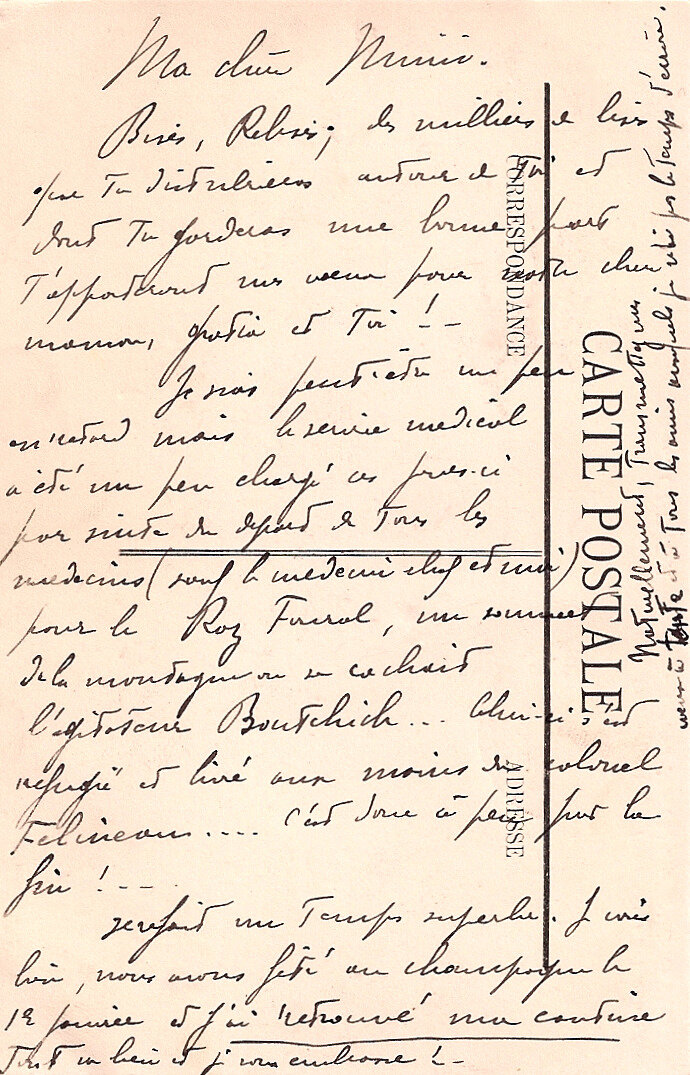 Ma chère Mimi.
Bises, Rebises, des milliers de bises
que Tu distribueras autour de Toi et
dont Tu garderas une bonne part
T'apporteront mes vœux pour notre chère
maman, et Toi ! -
Je suis peut-être un peu
en retard mais le service médical
a été un peu chargé ces jours-ci
par suite du départ de Tous les
médecins (sauf le médecin chef et moi)
pour le Roz Fourol, un sommet
de la montagne où se cachait
l'agitateur Boutchich... Celui-ci s'est
réfugié et livré aux mains du colonel
Felineau.... c'est donc à peu près la
fin ! - - -
Il fait un Temps superbe. Je vais
bien, nous avons fêté au champagne le
1er janvier et j'ai retrouvé ma cantine
Tout va bien et je vous embrasse ! -
Naturellement, Transmettez mes
vœux à Tante et à Tous les amis auxquels je n'ai pas le Temps d'écrire.
CARTE POSTALE
CORRESPONDANCE
ADRESSE